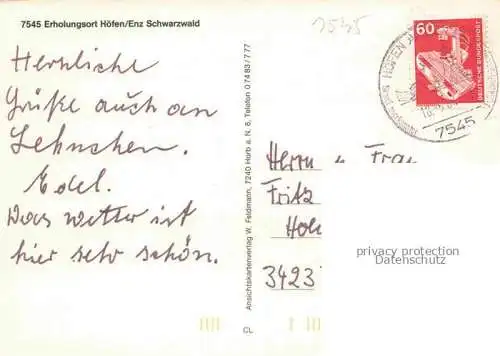 7545 Erholungsort Höfen/Enz Schwarzwald
7545
Herrliche
Grüße auch an
Lehnchen.
Edel.
Das wetter ist
hier sehr schön.
Ansichtskartenverlag W. Feldmann, 7240 Horb a. N. 6, Telefon 0 74 83 / 7 77
CL
60
DEUTSCHE BUNDESPOST
HÖFEN
7545
Herrn u Frau
Fritz
Hol
3423
privacy protection
Datenschutz